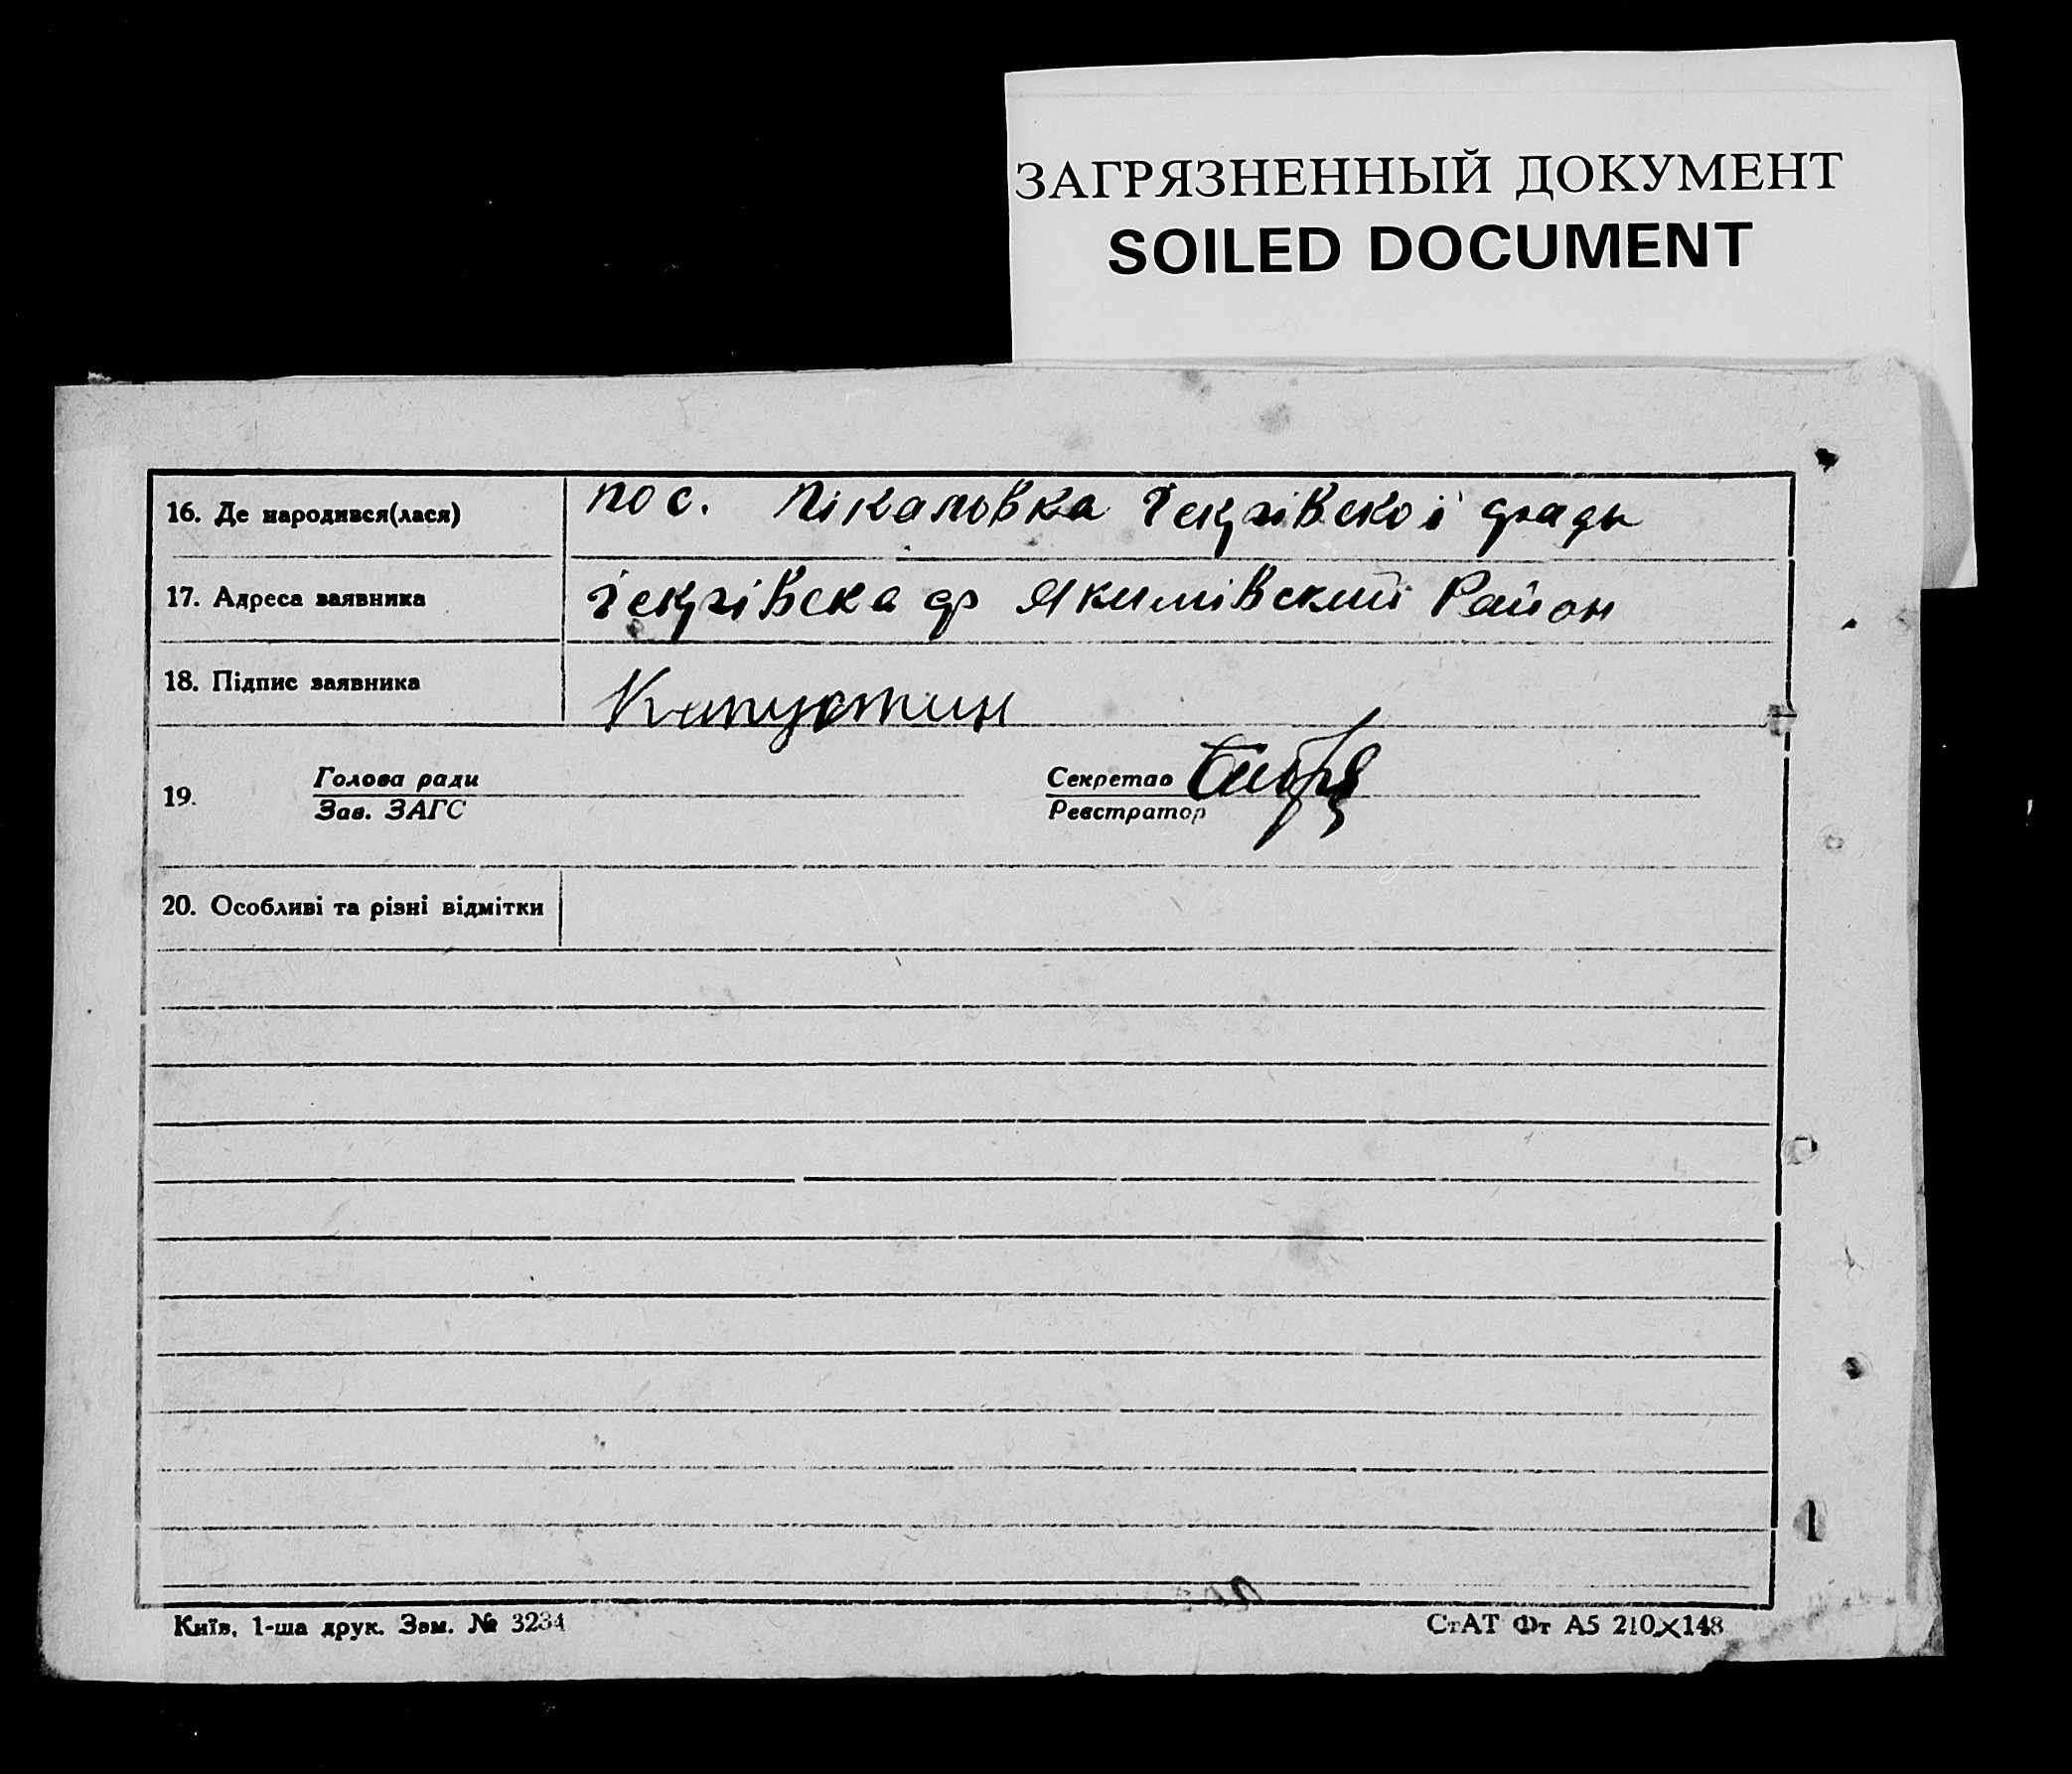 ЗАГРЯЗНЕННЫЙ ДОКУМЕНТ
SOILED DOCUMENT
16. Де народився(лася) пос. Пікаловка
17. Адреса заявника Якимівский Район
18. Підпис заявника Капустин
19. Голова ради Секретар
Зав. ЗАГС Реєстратор
20. Особливі та різні відмітки
Київ, 1-ша друк. Зам. № 3234 СтАТ Фт А5 210×148